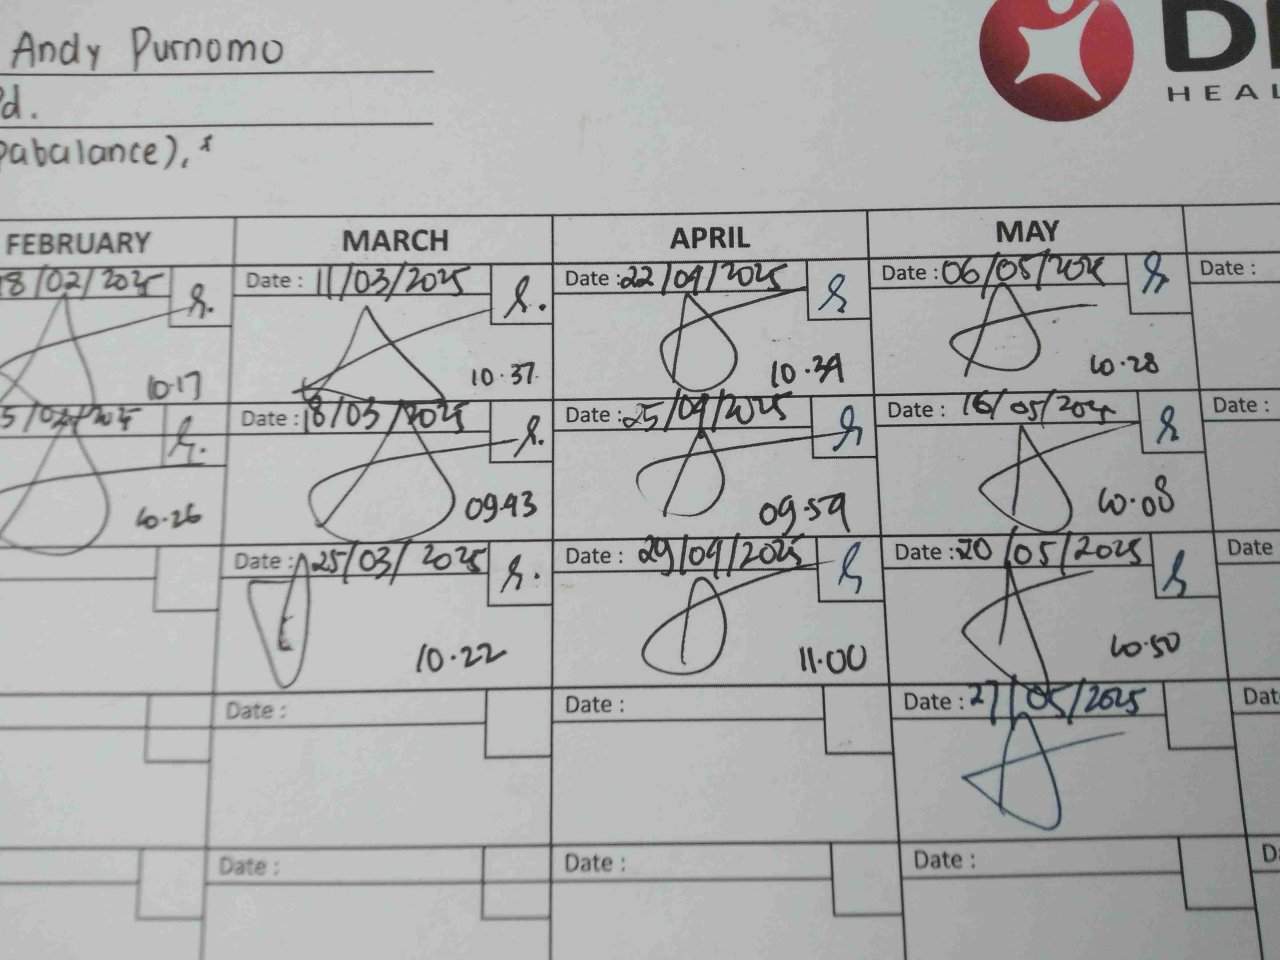 Andy Purnomo
Pd.
pabalance),*
HEAL
FEBRUARY MARCH APRIL MAY
18/02/2025 Date : 11/03/2025 Date : 22/04/2025 Date : 06/05/2025 Date :
10.17 10.37 10.34 10.28
5/02/2025 Date : 18/03/2025 Date : 25/04/2025 Date : 16/05/2025 Date :
10.26 09.43 09.59 10.08
Date : 25/03/2025 Date : 29/04/2025 Date : 20/05/2025 Date
10.22 11.00 10.50
Date : Date : Date : 27/05/2025 Dat
Date : Date : Date : D